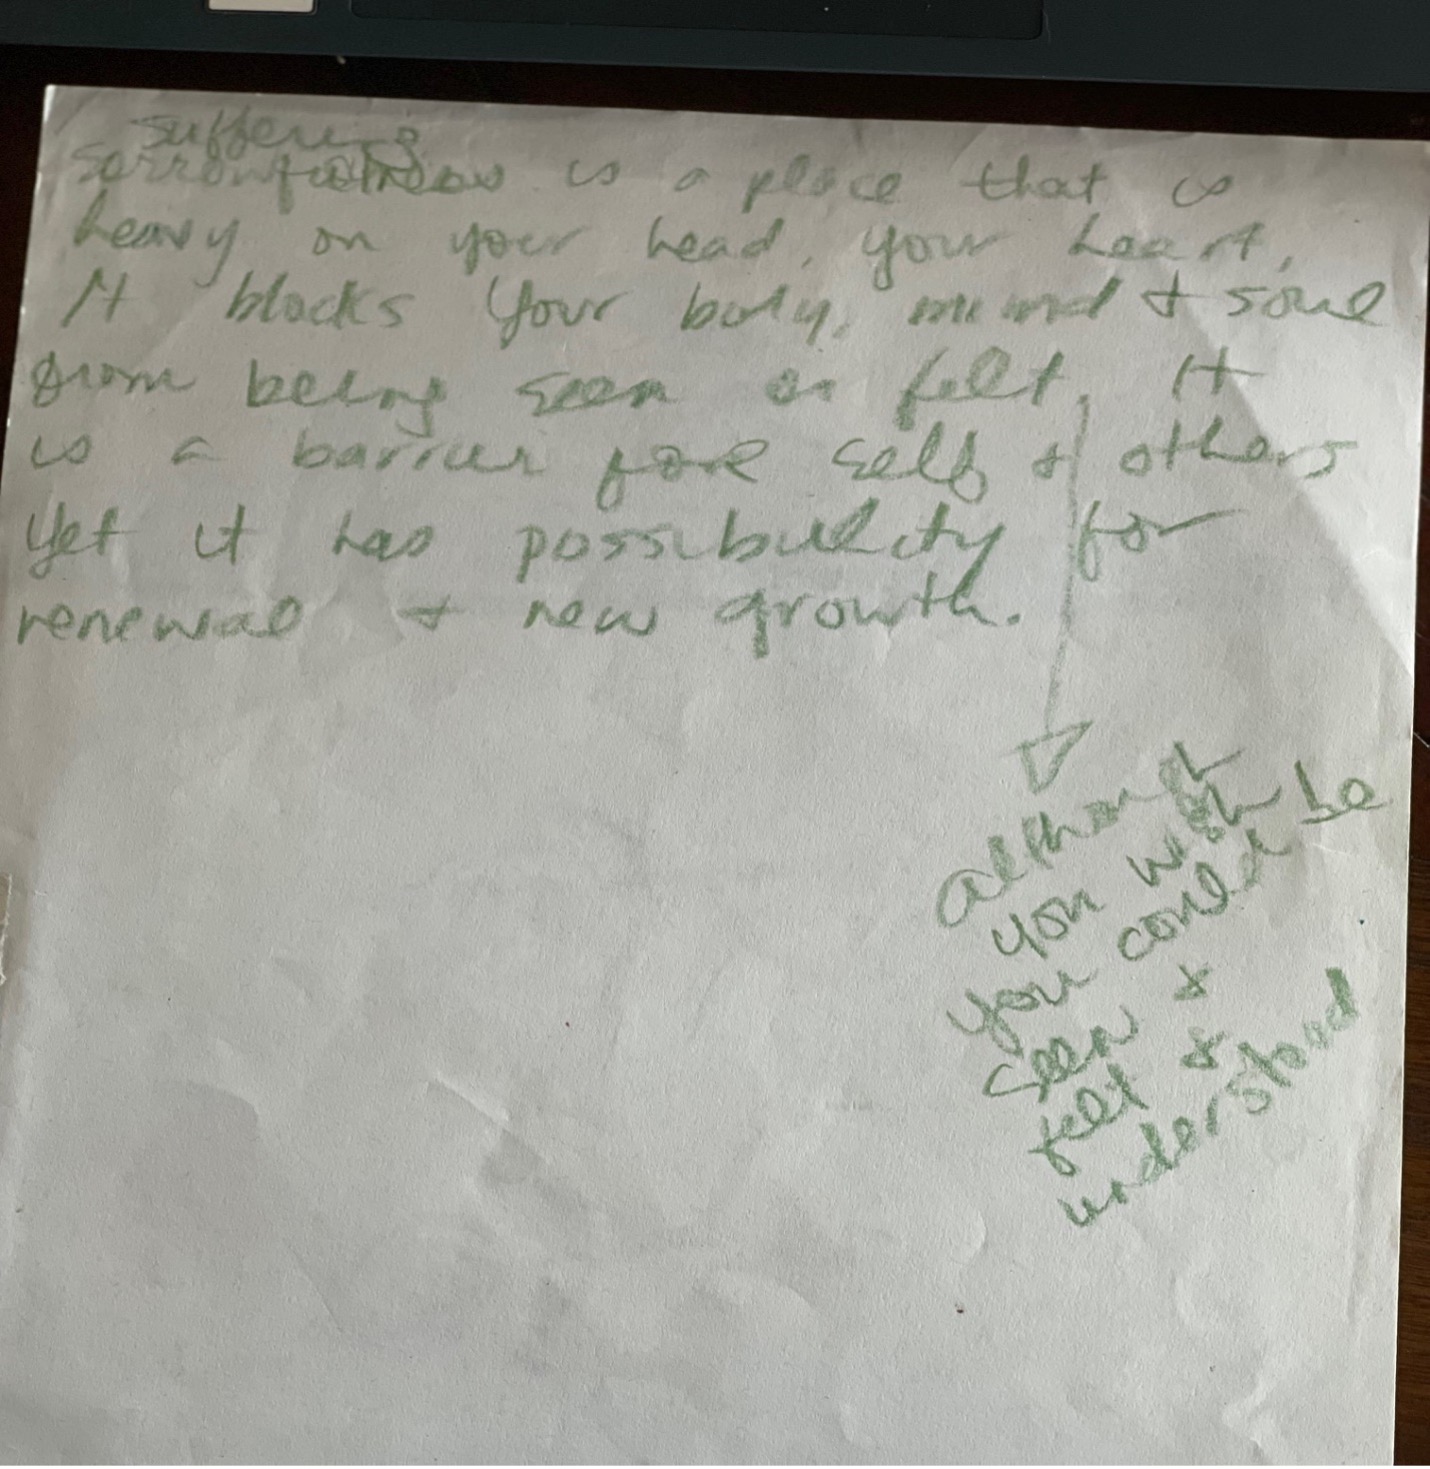 suffering
sorrowfulness is a place that is
heavy on your head, your heart,
It blocks your body, mind + soul
from being seen or felt. It
is a barrier for self + others
Yet it has possibility for
renewal + new growth.
although
you wish
you could be
seen &
felt &
understood